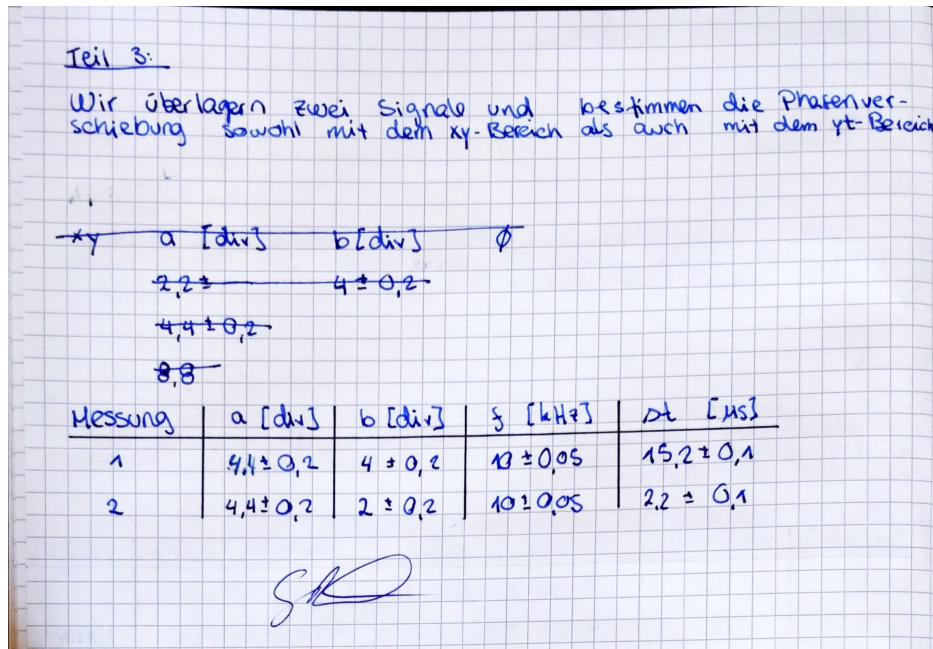 Teil 3:
Wir überlagern zwei Signale und bestimmen die Phasenver-
schiebung sowohl mit dem xy-Bereich als auch mit dem yt-Bereich
xy a [div] b [div] ϕ
2,2 ± 4 ± 0,2
4,4 ± 0,2
8,8
Messung a [div] b [div] f [kHz] Δt [µs]
1 4,4 ± 0,2 4 ± 0,2 10 ± 0,05 15,2 ± 0,1
2 4,4 ± 0,2 2 ± 0,2 10 ± 0,05 2,2 ± 0,1